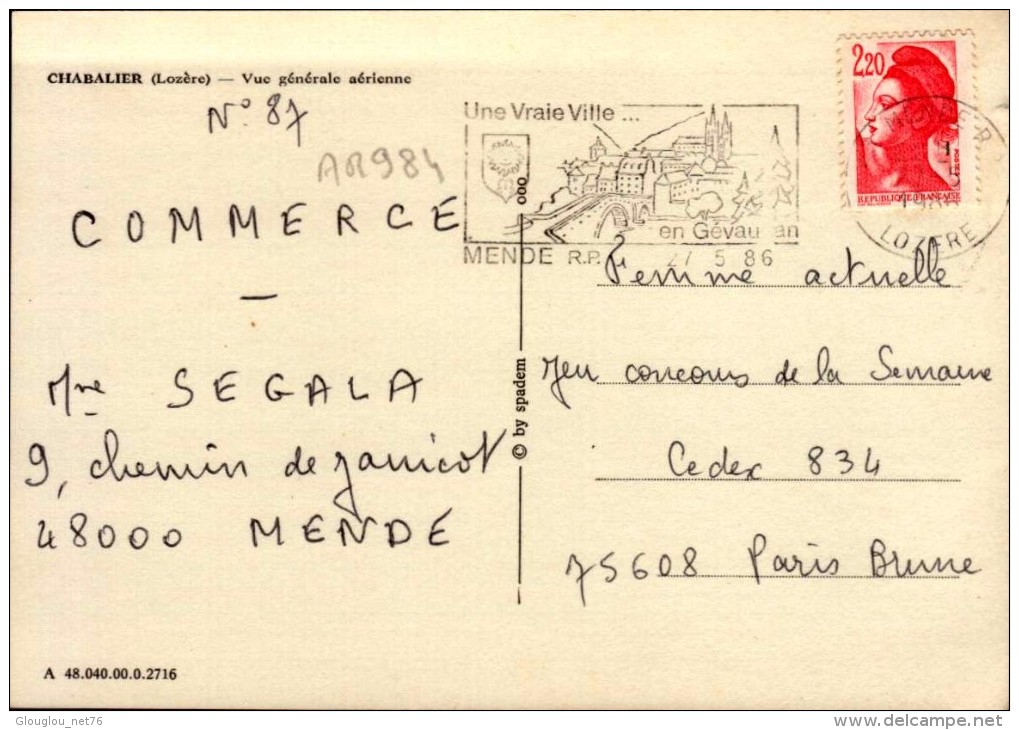 CHABALIER (Lozère) — Vue générale aérienne
N° 87
AR984
COMMERCE
—
Mme SEGALA
9, chemin de Janicot
48000 MENDE
A 48.040.00.0.2716
© by spadem
ooo
Une Vraie Ville ...
en Gévau an
MENDE R.P. 27 5 86
2,20
REPUBLIQUE FRANÇAISE
LOZERE
Femme actuelle
Jeu concours de la Semaine
Cedex 834
75608 Paris Brune
Glouglou_net76
www.delcampe.net